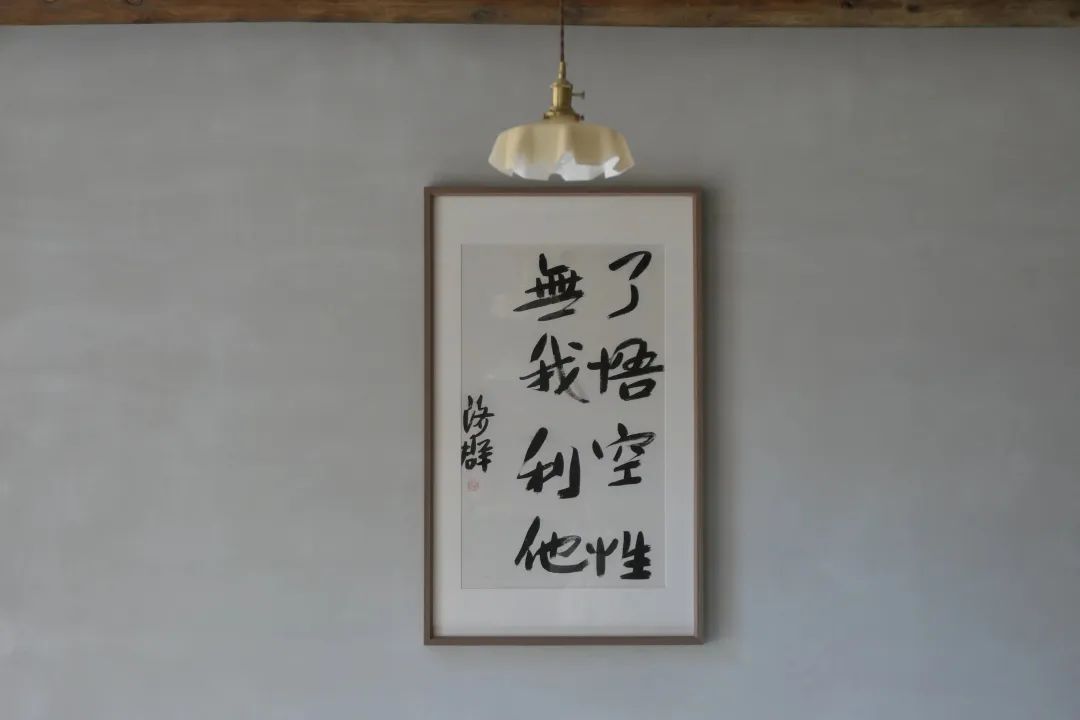 了悟空性
無我利他
济群